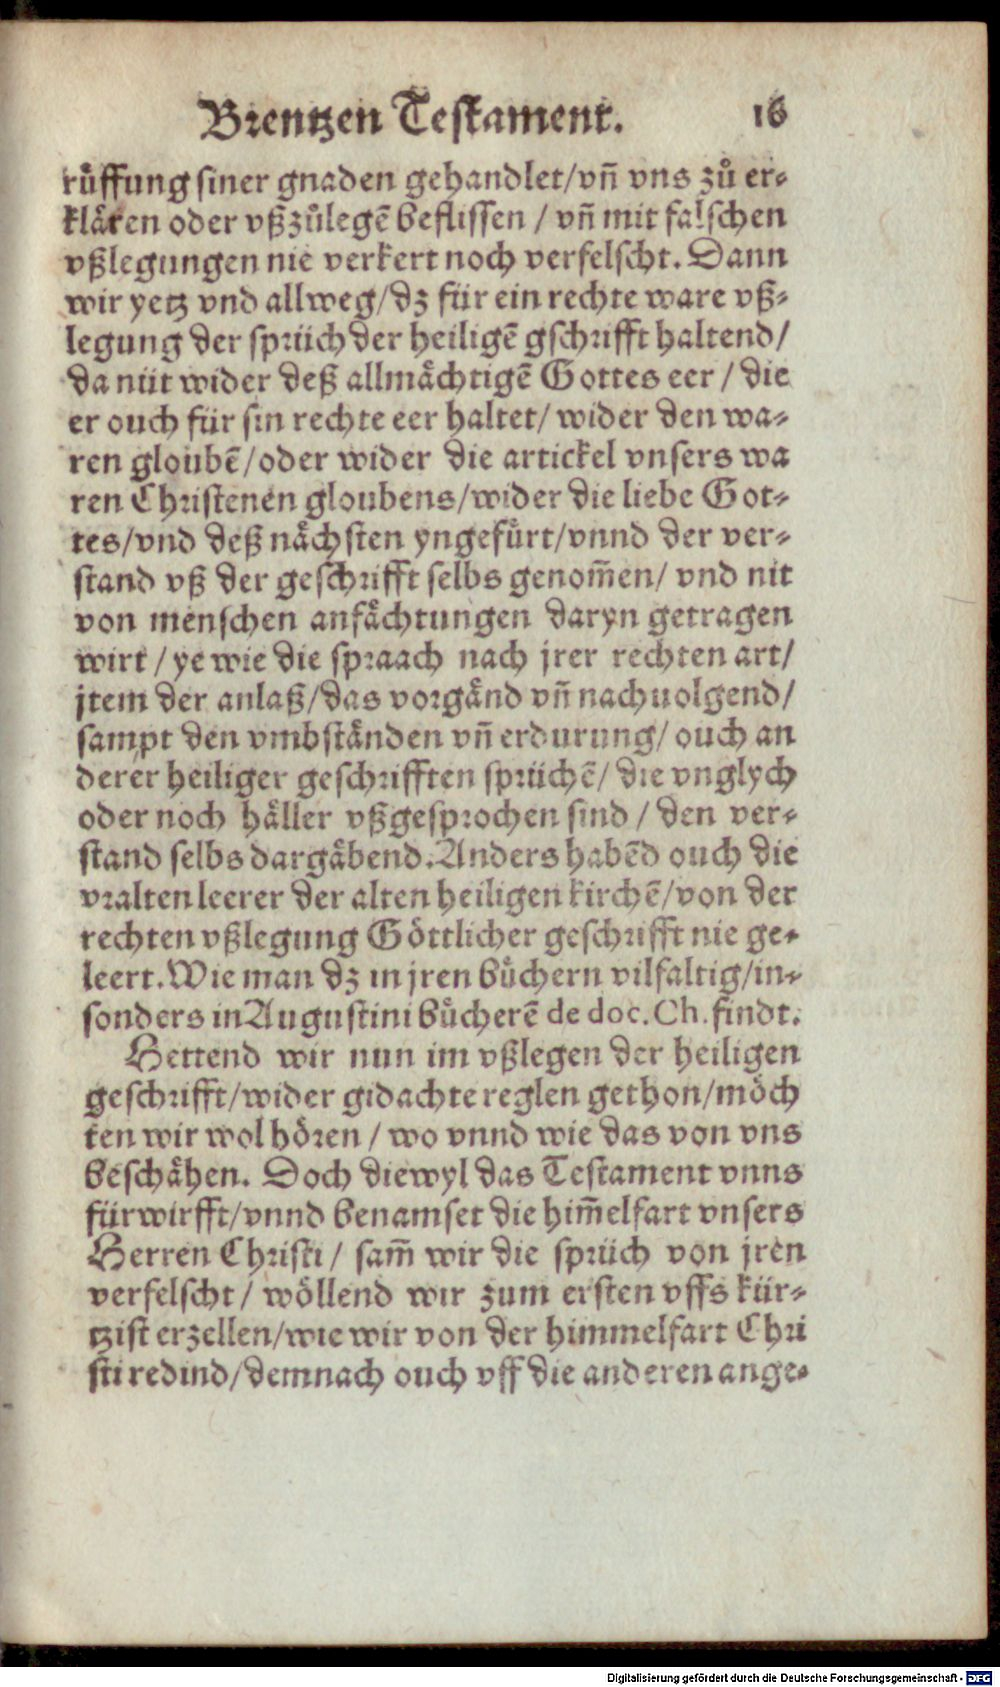 Brentzen Testament. 16
rüffung siner gnaden gehandlet/vñ vns zů er-
klären oder vßzůlegẽ beflissen / vñ mit falschen
vßlegungen nie verkert noch verfelscht. Dann
wir yetz vnd allweg/dz für ein rechte ware vß-
legung der sprüch der heiligẽ gschrifft haltend/
da nüt wider deß allmächtigẽ Gottes eer / die
er ouch für sin rechte eer haltet/ wider den wa-
ren gloubẽ/oder wider die artickel vnsers wa
ren Christenen gloubens/wider die liebe Got-
tes/vnd deß nächsten yngefürt/vnnd der ver-
stand vß der geschrifft selbs genom̃en/ vnd nit
von menschen anfächtungen daryn getragen
wirt / ye wie die spraach nach jrer rechten art/
jtem der anlaß/das vorgänd vñ nachuolgend/
sampt den vmbständen vñ erdurung/ ouch an
derer heiliger geschrifften sprüchẽ/ die vnglych
oder noch häller vßgesprochen sind / den ver-
stand selbs dargäbend. Anders habẽd ouch die
vralten leerer der alten heiligen kirchẽ/von der
rechten vßlegung Göttlicher geschrifft nie ge-
leert. Wie man dz in jren bůchern vilfaltig/in-
sonders in Augustini bůcherẽ de doc. Ch. findt.
Hettend wir nun im vßlegen der heiligen
geschrifft/wider gidachte reglen gethon/möch
ten wir wol hören / wo vnnd wie das von vns
beschähen. Doch diewyl das Testament vnns
fürwirfft/vnnd benamset die him̃elfart vnsers
Herren Christi / sam̃ wir die sprüch von jren
verfelscht / wöllend wir zum ersten vffs kür-
tzist erzellen/wie wir von der himmelfart Chri
sti redind/demnach ouch vff die anderen ange-
Digitalisierung gefördert durch die Deutsche Forschungsgemeinschaft - DFG